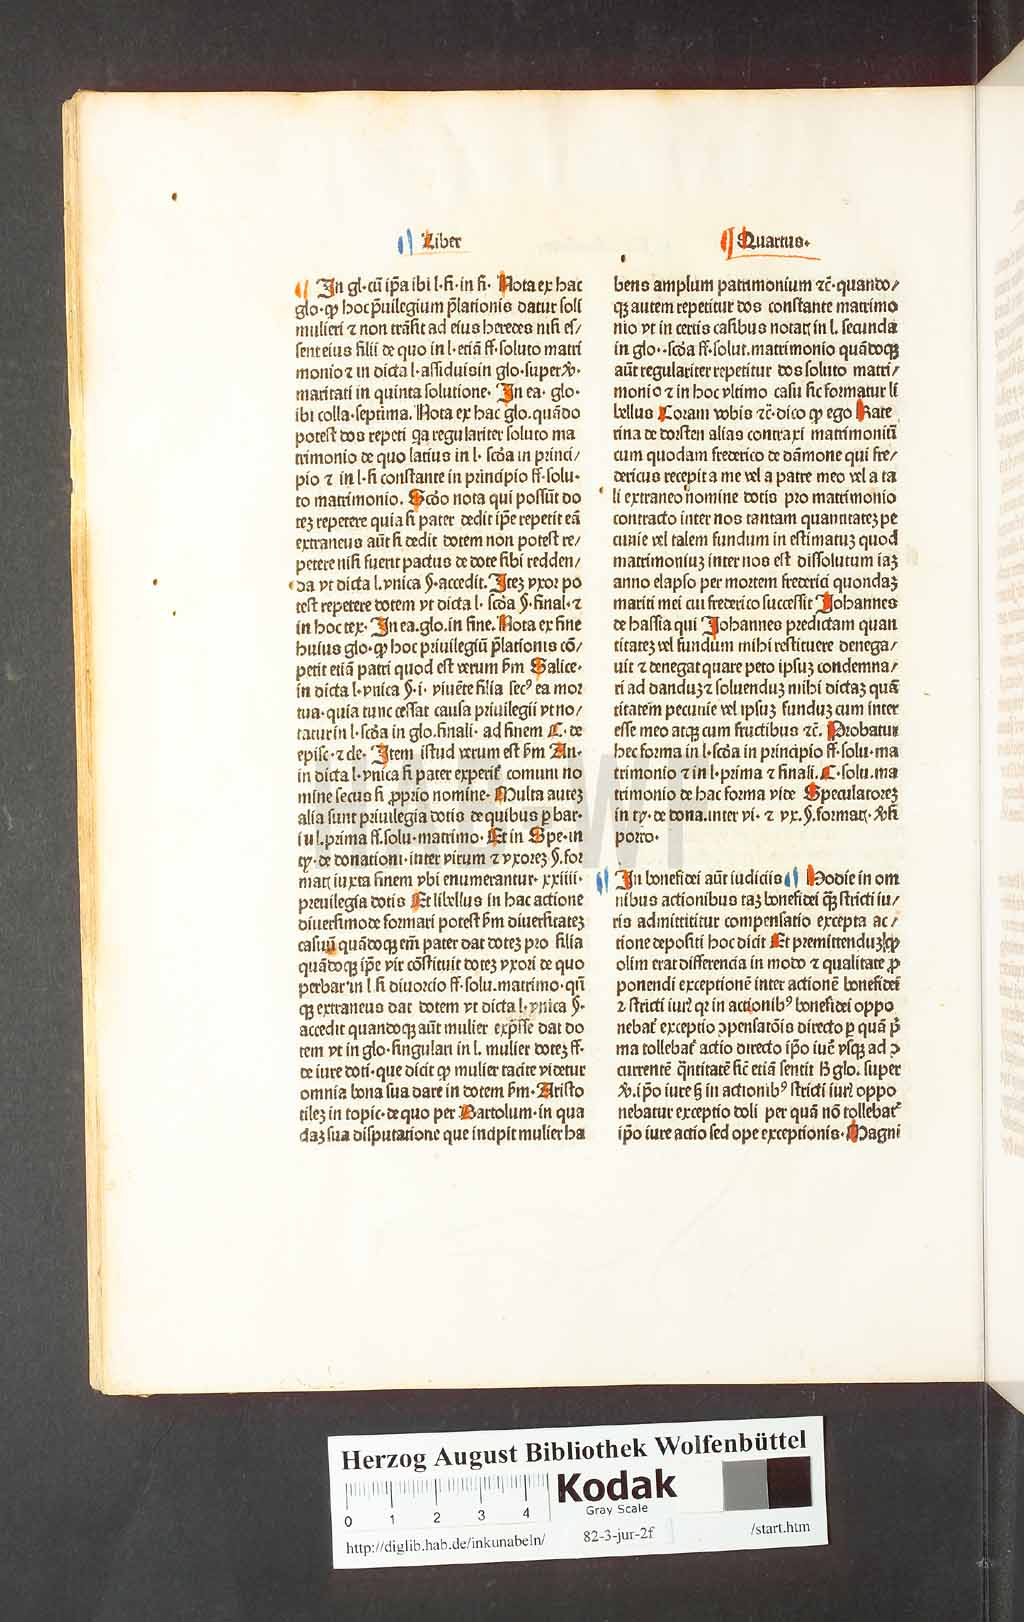 Liber
Quartus.
In gl. cū ip̄a ibi l. fi. in fi. Nota ex hac
glo. ꝙ hoc p̄uilegium p̄lationis datur soli
mulieri ⁊ non trāsit ad eius heredes nisi es/
sent eius filii de quo in l. etiā ff. soluto matri
monio ⁊ in dicta l. assiduis in glo. super ꝟ.
maritati in quinta solutione. In ea. glo.
ibi colla. septima. Nota ex hac glo. quādo
potest dos repeti q̄a regulariter soluto ma
trimonio de quo latius in l. scd̓a in princi/
pio ⁊ in l. fi constante in principio ff. solu.
to matrimonio. Scd̓o nota qui possūt do
teꝫ repetere quia si pater dedit ip̄e repetit eā
extraneus aūt si dedit dotem non potest re/
petere nisi fuerit pactus de dote sibi redden/
da vt dicta l. vnica §. accedit. Iteꝫ vxor po
test repetere dotem vt dicta l. scd̓a §. final. ⁊
in hoc tex. In ea. glo. in fine. Nota ex fine
huius glo. ꝙ hoc priuilegiū p̄lationis cō/
petit etiā patri quod est verum s̄m Salice.
in dicta l. vnica §. i. viuēte filia secꝰ ea mor
tua. quia tunc cessat causa priuilegii vt no/
tatur in l. scd̓a in glo. finali. ad finem C. de
episc. ⁊ cle. Item istud verum est s̄m An.
in dicta l. vnica si pater experit̄ comuni no
mine secus si ꝓprio nomine. Multa auteꝫ
alia sunt priuilegia dotis de quibus ꝑ bar.
i u l. prima ff. solu. matrimo. Et in Spe. in
ty. de donationi. inter virum ⁊ vxoreꝫ §. for
matꝭ iuxta finem vbi enumerantur. xxiiii.
preuilegia dotis Et libellus in hac actione
diuersimode formari potest s̄m diuersitateꝫ
casuū quādoqꝫ em̄ pater dat doteꝫ pro filia
quādoqꝫ ip̄e vir cōstituit doteꝫ vxori de quo
per bar in l. si diuorcio ff. solu. matrimo. qn̄
qꝫ extraneus dat dotem vt dicta l. vnica §.
accedit quandoqꝫ aūt mulier exp̄sse dat do
tem vt in glo. singulari in l. mulier doteꝫ ff.
de iure doti. que dicit ꝙ mulier tacite videtur
omnia bona sua dare in dotem s̄m. Aristo
tileꝫ in topic. de quo per Bartolum. in qua
daꝫ sua disputatione que incipit mulier ha
bens amplum patrimonium ⁊c̄. quando/
qꝫ autem repetitur dos constante matrimo
nio vt in certis casibus notatꝭ in l. secunda
in glo. scd̓a ff. solut. matrimonio quādoqꝫ
aūt regulariter repetitur dos soluto matri/
monio ⁊ in hoc vltimo casu sic formatur li
bellus Coram vobis ⁊c̄. dico ꝙ ego Kate
rina de dorsten alias contraxi matrimoniū
cum quodam frederico de dāmone qui fre/
dericus recepit a me vel a patre meo vel a ta
li extraneo nomine dotis pro matrimonio
contracto inter nos tantam quantitateꝫ pe
cunie vel talem fundum in estimatuꝫ quod
matrimoniuꝫ inter nos est dissolutum iaꝫ
anno elapso per mortem frederici quondaꝫ
mariti mei cui frederico successit Johannes
de hassia qui Johannes predictam quan
titateꝫ vel fundum mihi restituere denega/
uit ⁊ denegat quare peto ipsuꝫ condemna/
ri ad danduꝫ ⁊ soluenduꝫ mihi dictaꝫ quā
titatem pecunie vel ipsuꝫ funduꝫ cum inter
esse meo atqꝫ cum fructibus ⁊c̄. Probatur
hec forma in l. scd̓a in principio ff. solu. ma
trimonio ⁊ in l. prima ⁊ finali. C. solu. ma
trimonio de hac forma vide Speculatoreꝫ
in ty. de dona. inter vi. ⁊ vx. §. formatꝭ. ꝟsi
porro.
In bonefidei aūt iudiciis Hodie in om
nibus actionibus taꝫ bonefidei qꝫ̄ stricti iu/
ris admittititur compensatio excepta ac/
tione depositi hoc dicit Et premittenduꝫ ꝙ
olim erat differencia in modo ⁊ qualitate ꝓ
ponendi exceptionē inter actionē bonefidei
⁊ stricti iurꝭ qꝛ in actionibꝰ bonefidei oppo
nebat̄ exceptio ↄpensatōis directo ꝑ quā p̄
ma tollebat̄ actio directo ip̄o iuē vsqꝫ ad ↄ
currentē q̄ntitatē sic̄ etiā sentit h̄ glo. super
ꝟ. ip̄o iure s̄ in actionibꝰ stricti iurꝭ oppo
nebatur exceptio doli per quā nō tollebat̄
ip̄o iure actio sed ope exceptionis. Magni
HAB-WF
Herzog August Bibliothek Wolfenbüttel
0 1 2 3 4
Kodak
Gray Scale
http://diglib.hab.de/inkunabeln/
82-3-jur-2f
/start.htm